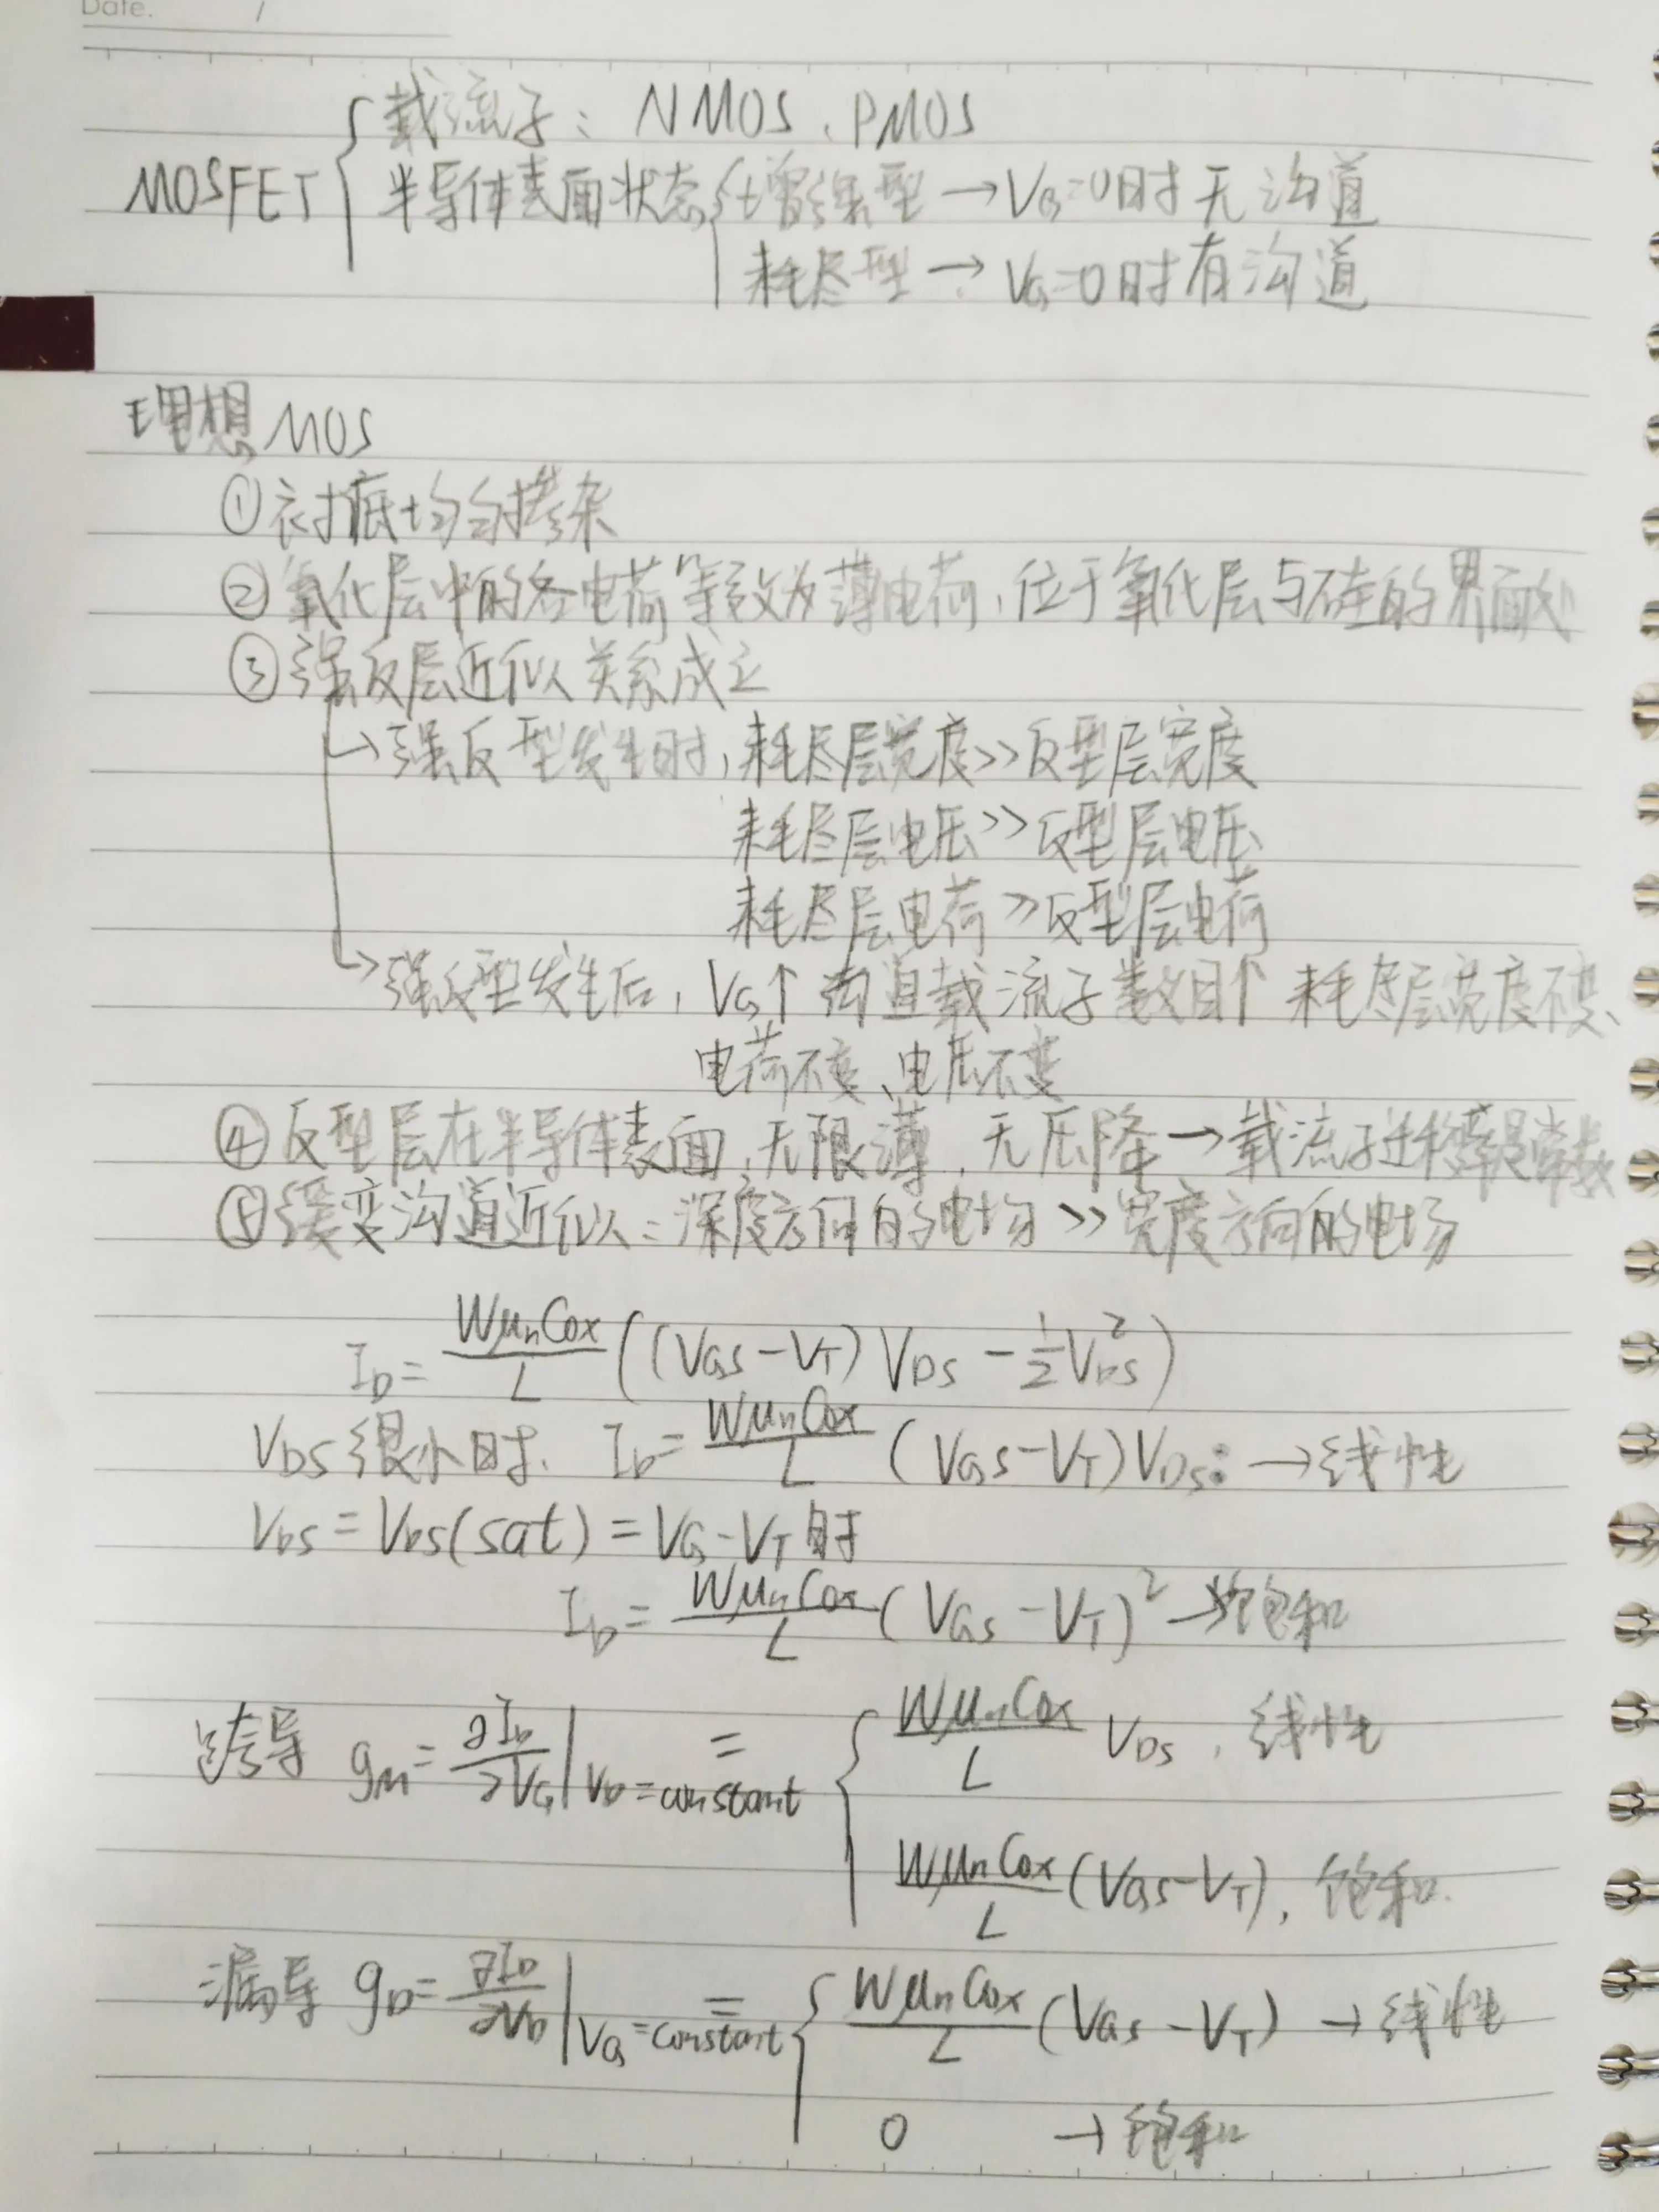 Date. /
载流子: NMOS、PMOS
MOSFET { 半导体表面状态 { 增强型 → V_G=0时无沟道
耗尽型 → V_G=0时有沟道
理想MOS
①衬底均匀掺杂
②氧化层中的各电荷等效为薄电荷,位于氧化层与硅的界面处
③强反层近似关系成立
↳强反型发生时,耗尽层宽度>>反型层宽度
耗尽层电压>>反型层电压
耗尽层电荷>>反型层电荷
↳强反型发生后,V_G↑ 沟道载流子数目↑ 耗尽层宽度不变、
电荷不变、电压不变
④反型层在半导体表面,无限薄,无压降→载流子迁移率是常数
⑤缓变沟道近似:深度方向的电场>>宽度方向的电场
I_D = Wμ_nCox/L ((V_GS-V_T)V_DS - 1/2 V_DS²)
V_DS很小时, I_D = Wμ_nCox/L (V_GS-V_T)V_DS: →线性
V_DS = V_DS(sat) = V_G-V_T时
I_D = Wμ_nCox/L (V_GS-V_T)² →饱和
跨导 g_m = ∂I_D/∂V_G |V_D=constant = { Wμ_nCox/L V_DS, 线性
Wμ_nCox/L (V_GS-V_T), 饱和.
漏导 g_D = ∂I_D/∂V_D |V_G=constant = { Wμ_nCox/L (V_GS-V_T) →线性
0 →饱和